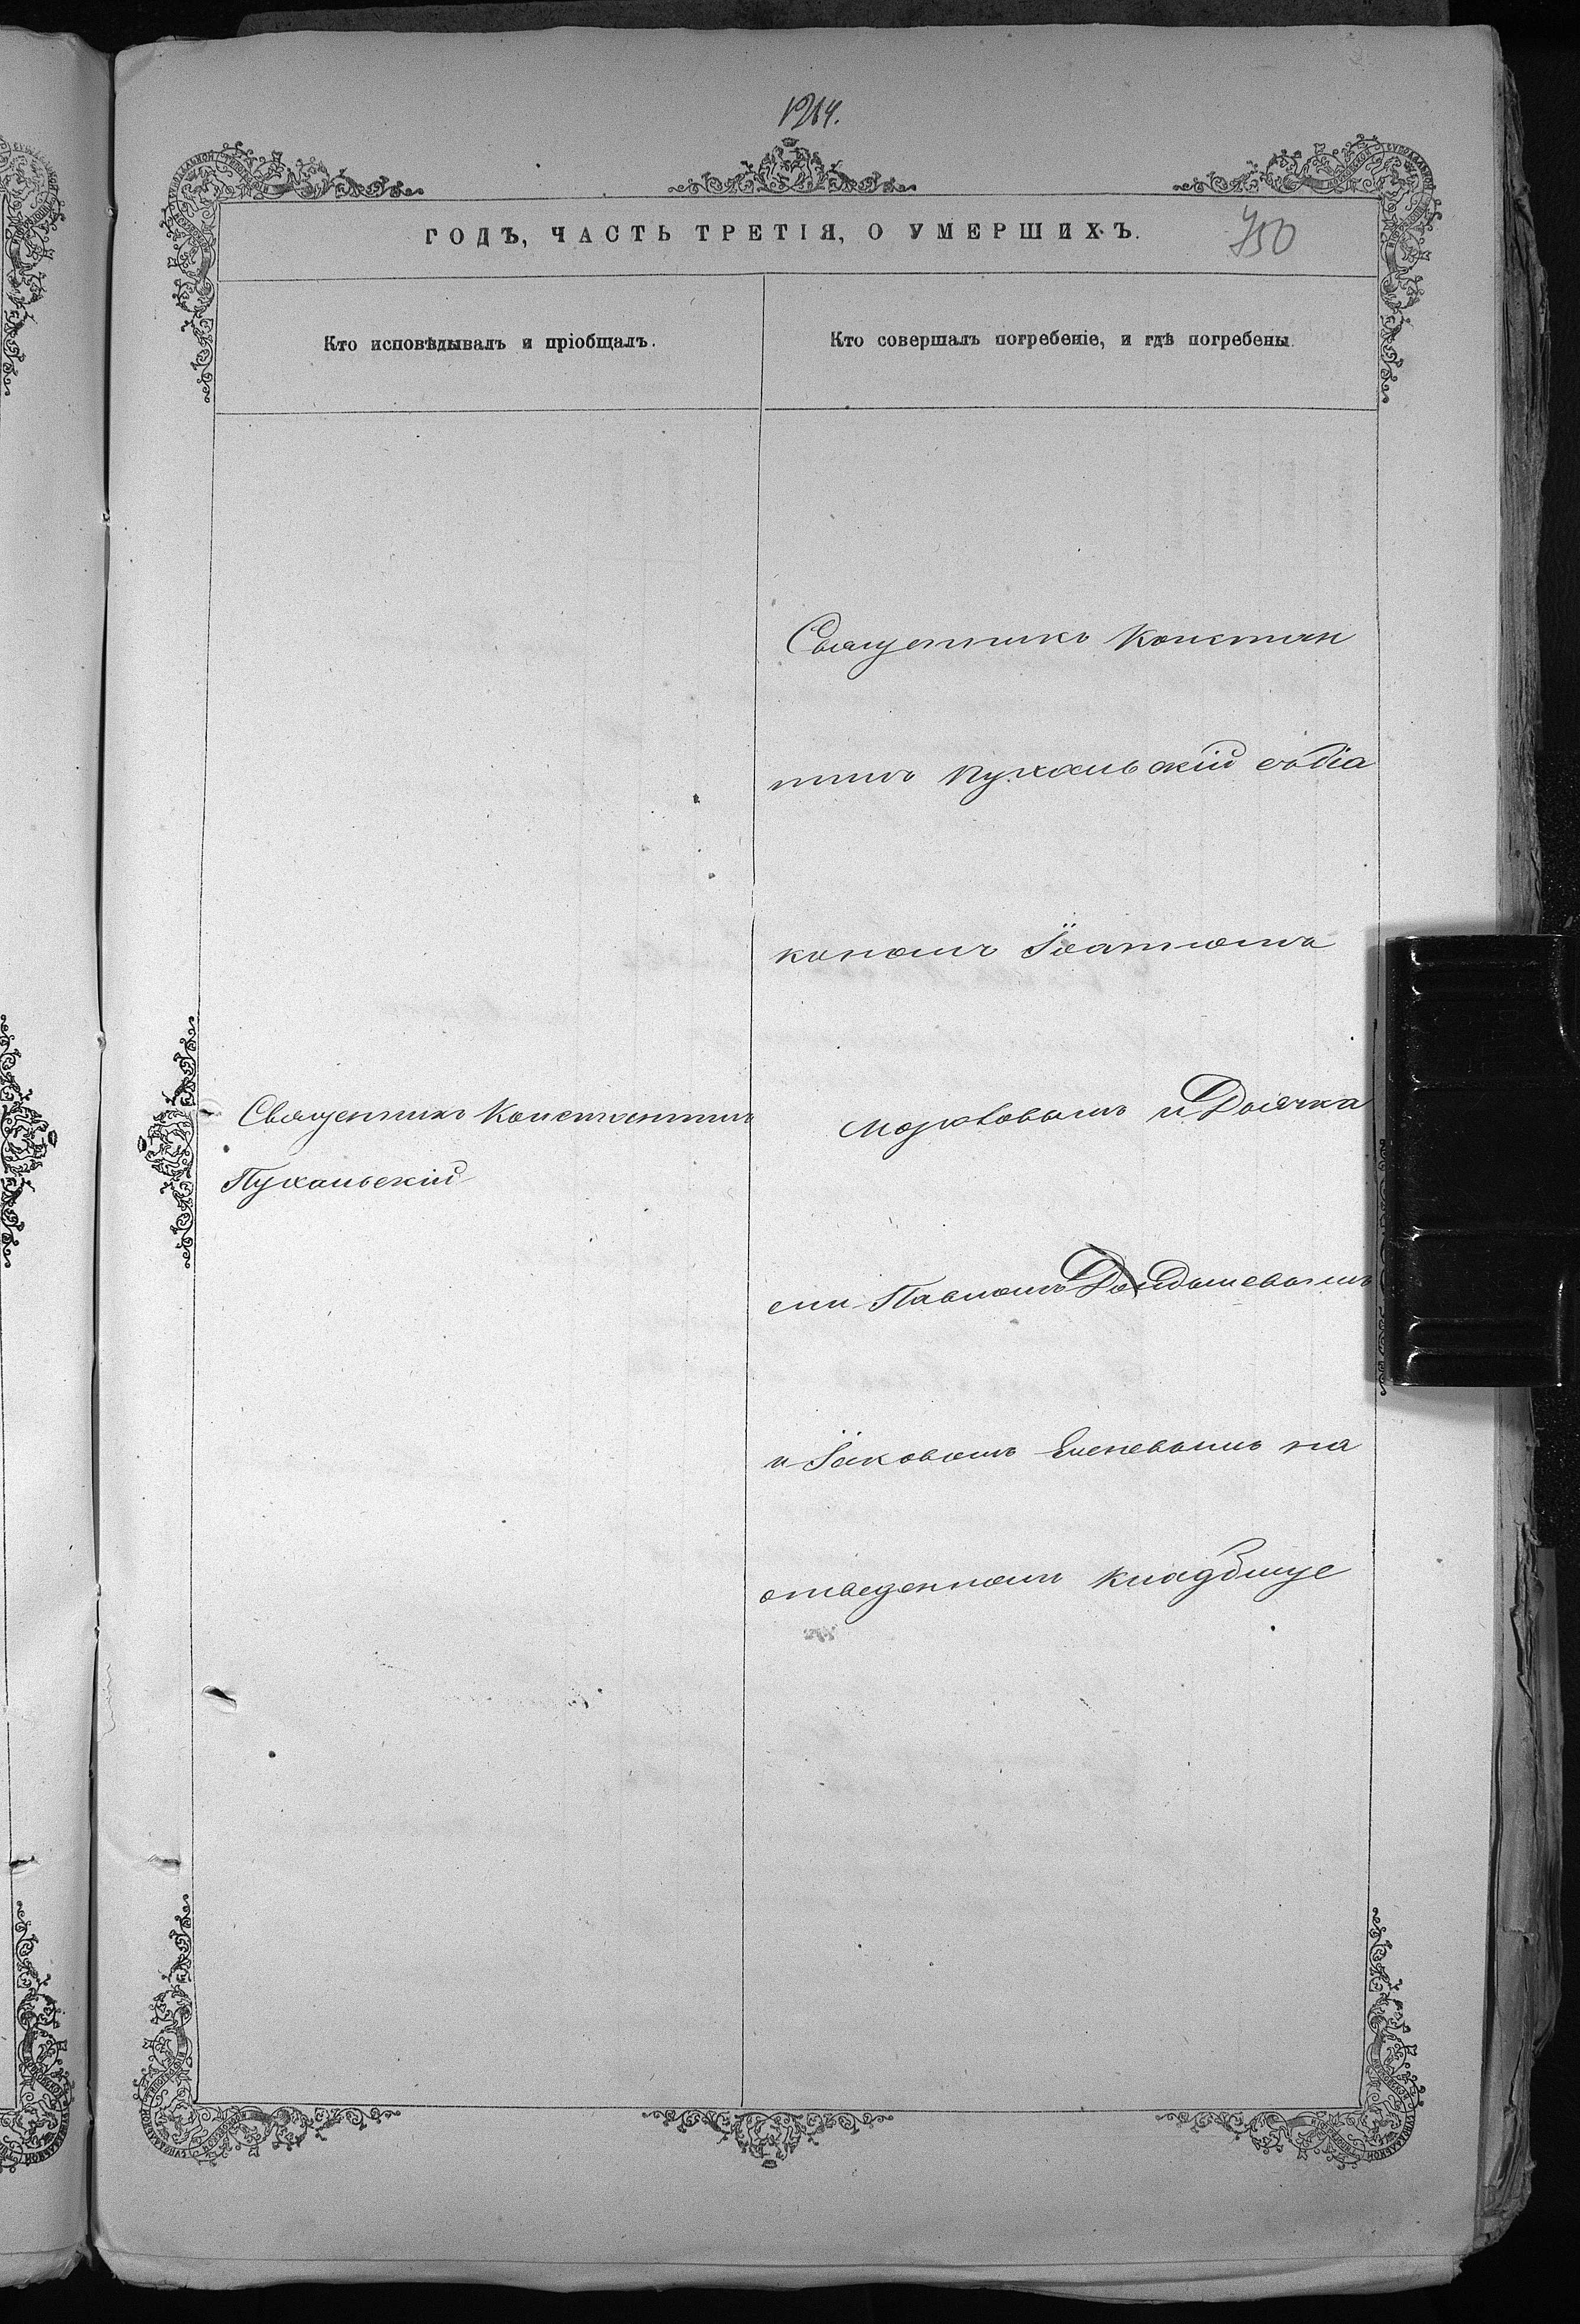 1214.
ГОДЪ, ЧАСТЬ ТРЕТІЯ, О УМЕРШИХЪ.
750
Кто исповѣдывалъ и пріобщалъ.
Кто совершалъ погребеніе, и гдѣ погребены.
Священникъ Константинъ
Пухальскій
Священникъ Констан
тинъ Пухальскій съ діа
кономъ Іоанномъ
и Дьячка
ми Павломъ
и Іаковомъ Еленевымъ на
отведенномъ кладбище